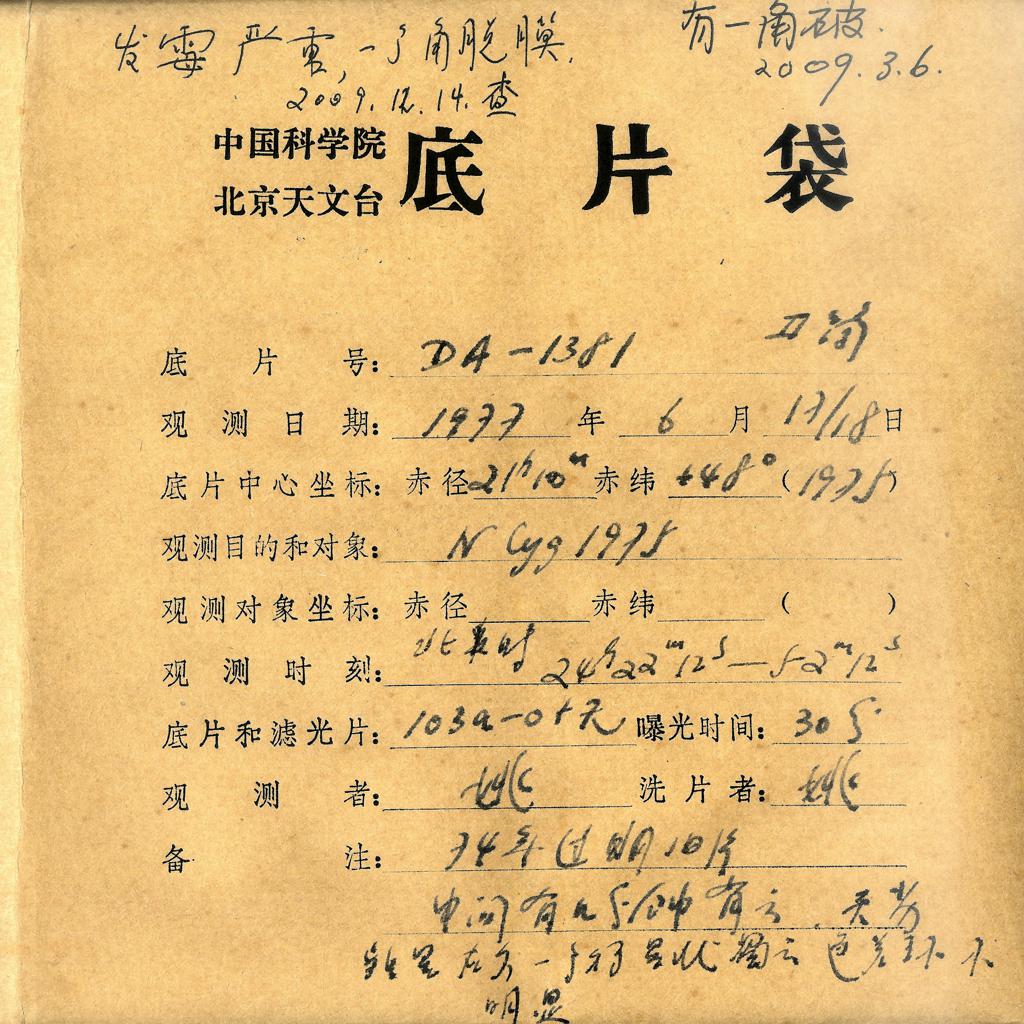 发霉严重，一个角脱膜.
2009.12.14.查
有一角破.
2009.3.6.
中国科学院
北京天文台
底片袋
底片号: DA-1381
观测日期: 1977 年 6 月 17/18 日
底片中心坐标: 赤径 21h10m 赤纬 +48° (1975)
观测目的和对象: N Cyg 1975
观测对象坐标: 赤径 赤纬 ( )
观测时刻: 北京时 24h22m12s—52m12s
底片和滤光片: 103a-0+无 曝光时间: 30分
观测者: 姚 洗片者: 姚
备注: 74年过期10片
中间有几分钟有云.
明显